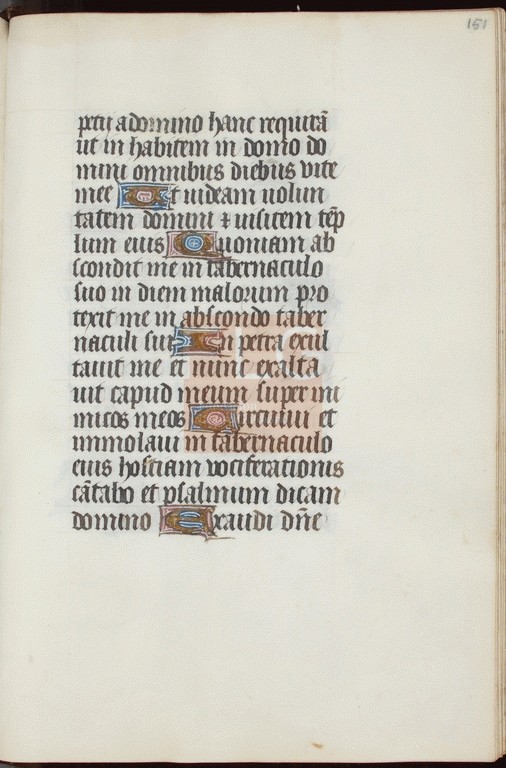 151
petii a domino hanc requirā
ut in habitem in domo do
mini omnibus diebus vite
mee Ut uideam uolun
tatem domini ⁊ uisitem tēp
lum eius Quoniam ab
scondit me in tabernaculo
suo in diem malorum pro
texit me in abscondo taber
naculi sui In petra exal
tauit me et nunc exalta
uit capud meum super ini
micos meos Circuiui et
immolaui in tabernaculo
eius hostiam vociferationis
cātabo et psalmum dicam
domino Exaudi dn̄e